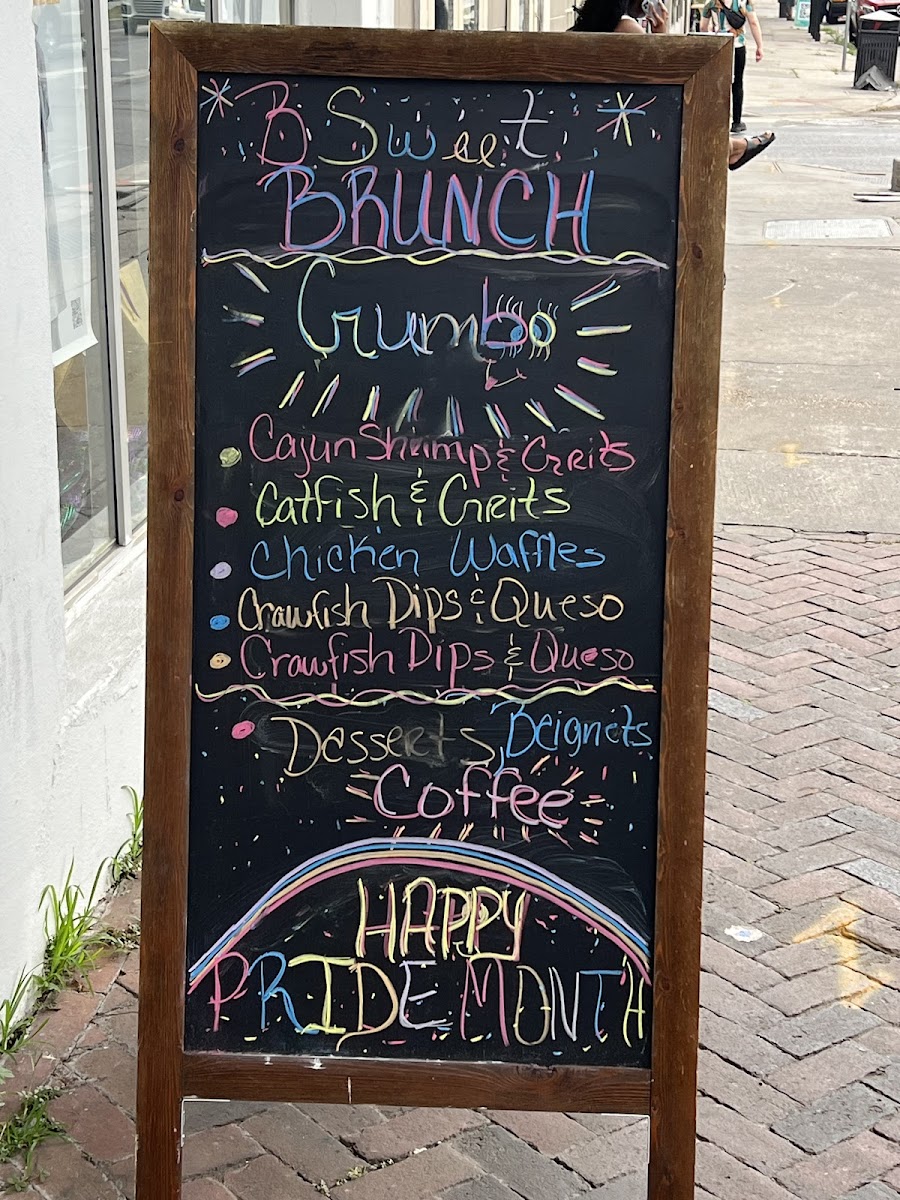 B Sweet
BRUNCH
Gumbo
Cajun Shrimp & Grits
Catfish & Grits
Chicken Waffles
Crawfish Dips & Queso
Crawfish Dips & Queso
Desserts, Beignets
Coffee
HAPPY
PRIDE MONTH